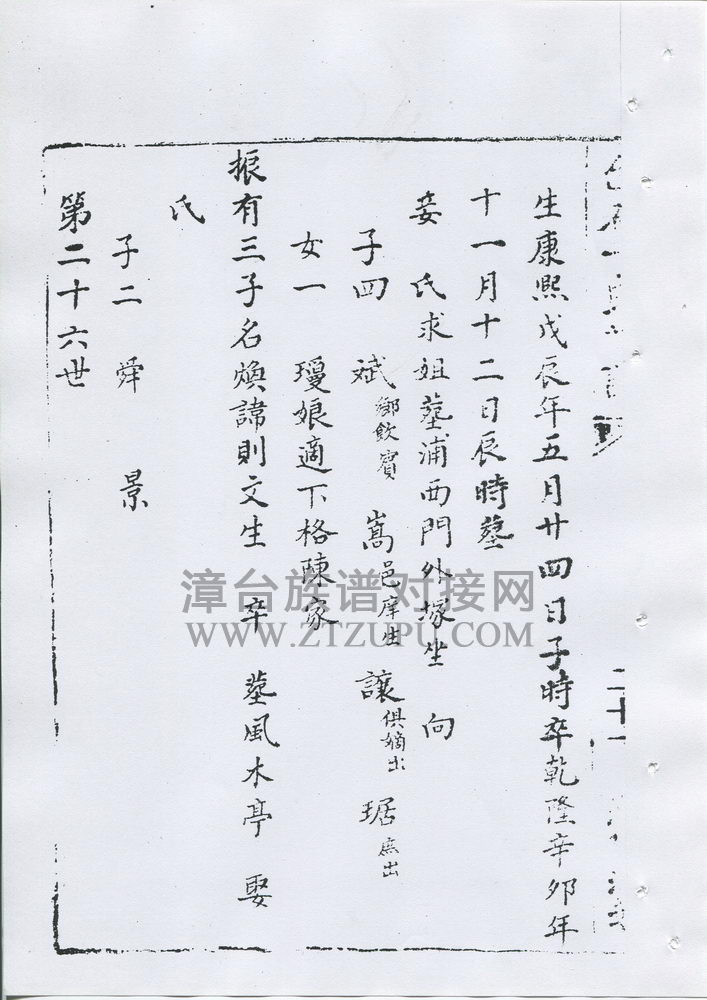 生康熙戊辰年五月廿四日子時卒乾隆辛夘年
十一月十二日辰時塟
妾 氏求姐墓浦西門外塚坐 向
子四 斌鄉飲賓 嵩邑庠生 讓俱嫡出 琚庶出
女一 璦娘適下格陳家
振有三子名煥諱則文生 卒 墓風木亭 娶
氏
子二 舜 景
第二十六世
漳台族谱对接网
WWW.ZTZUPU.COM